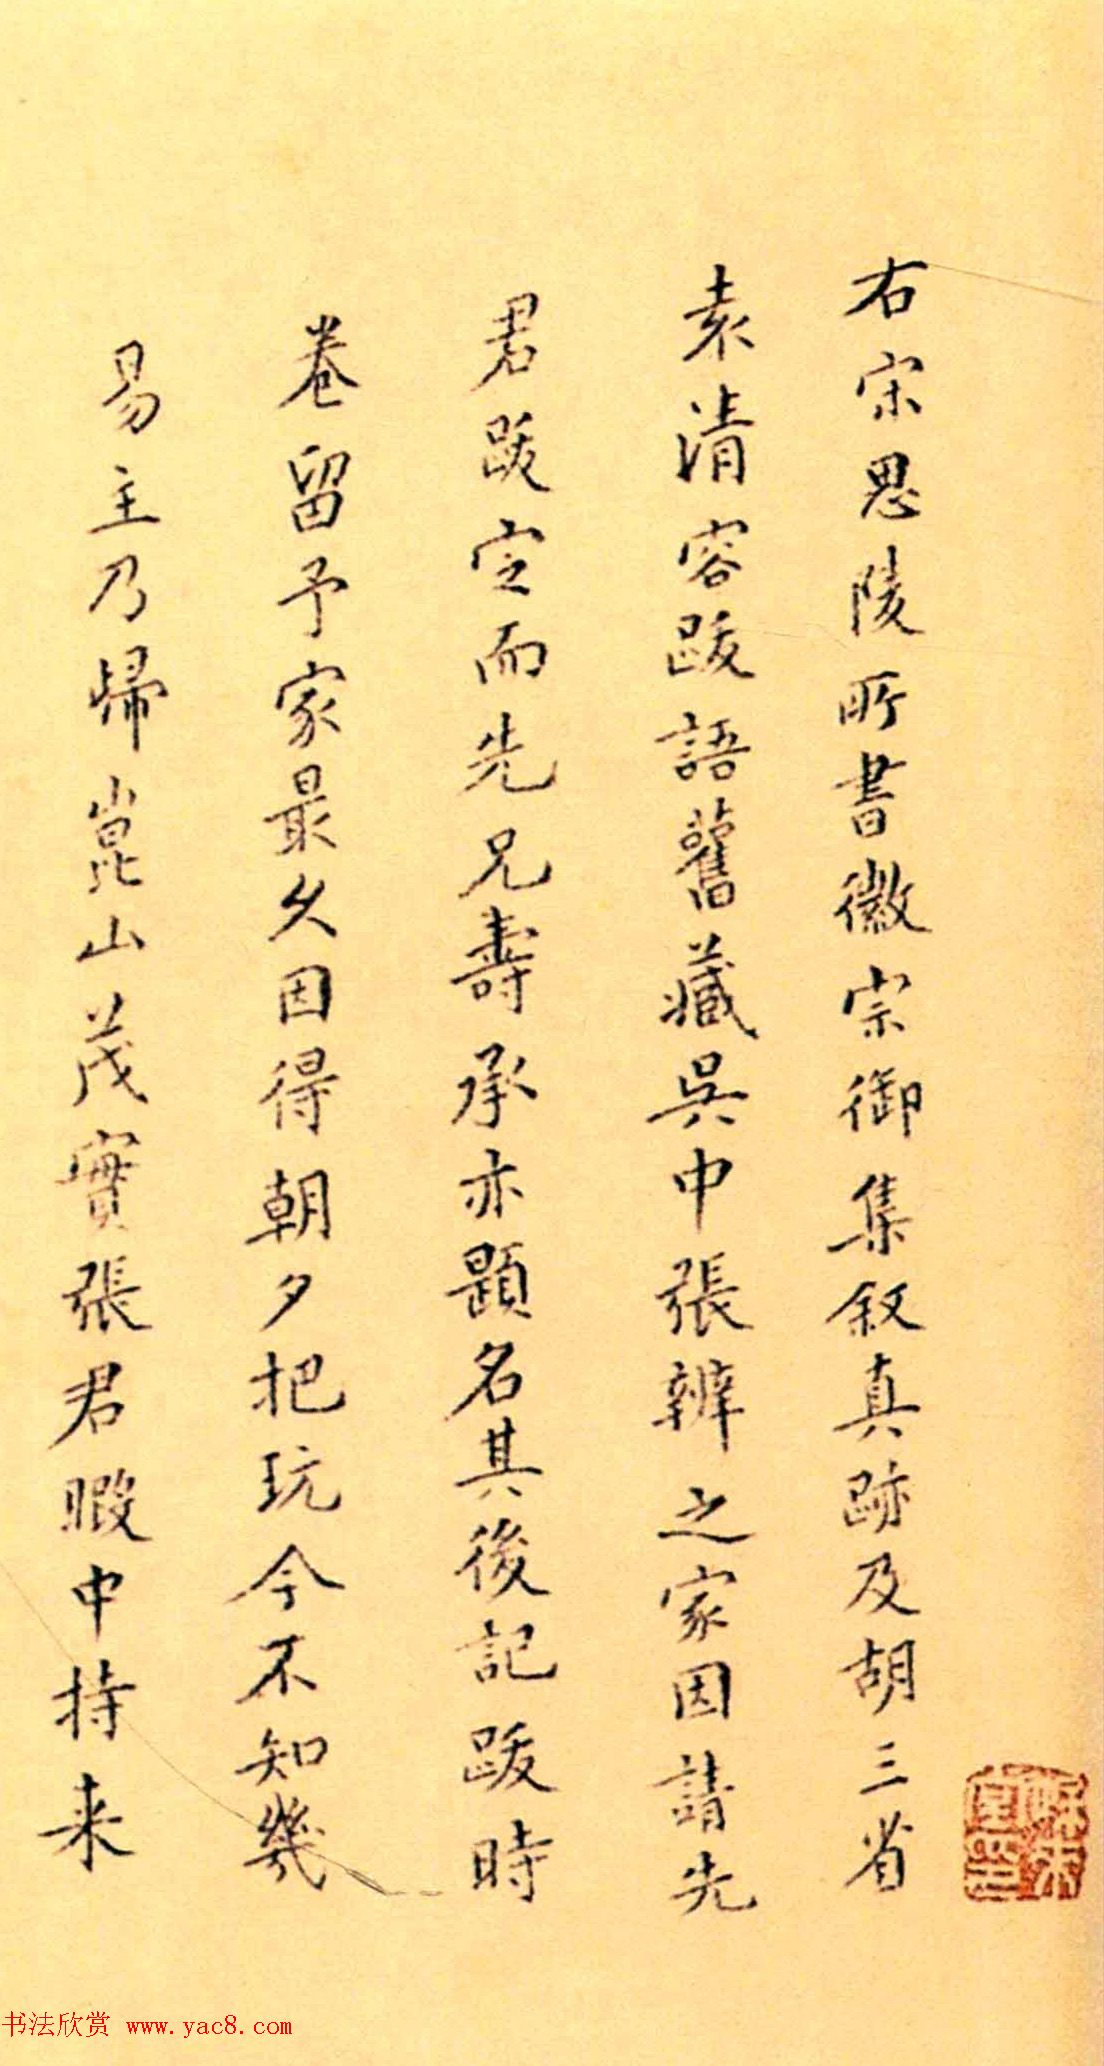 右宋思陵所書徽宗御集叙真跡及胡三省
袁清容跋語舊藏吳中張辨之家因請先
君跋定而先兄壽承亦題名其後記跋時
卷留予家最久因得朝夕把玩今不知幾
易主乃歸崑山茂實張君暇中持来
书法欣赏 www.yac8.com